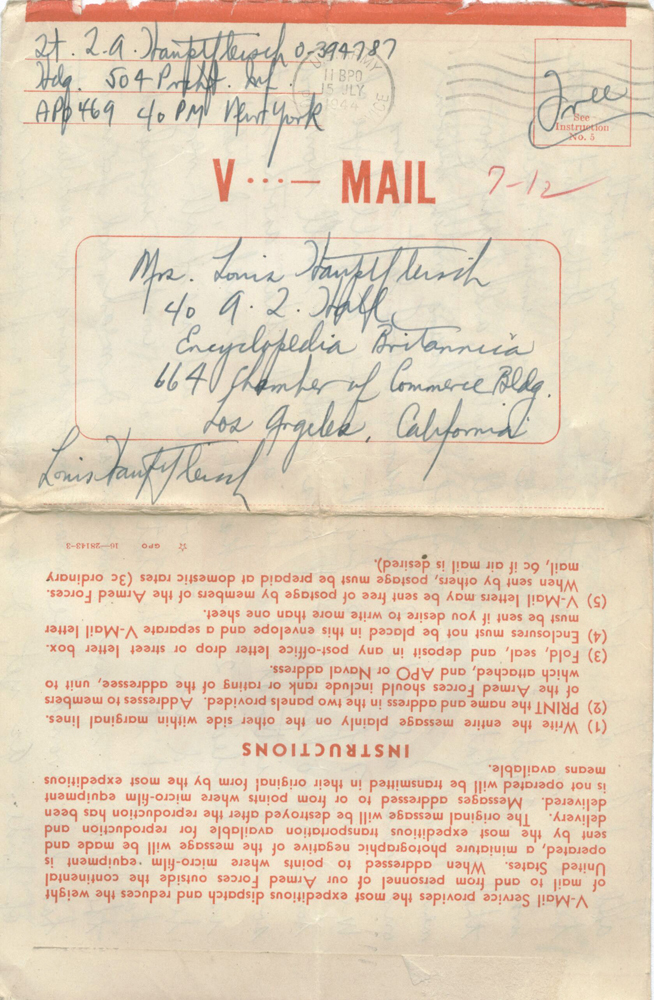 Lt. L.A. Hauptfleisch O-394787
Hdq. 504 Prcht. Inf.
APO 469 c/o PM New York
ARMY
11 BPO
15 JLY
1944
Free
See
Instruction
No. 5
V ...— MAIL
7-12
Mrs. Louis Hauptfleisch
c/o A. L. Hall
Encyclopedia Britannica
664 Chamber of Commerce Bldg.
Los Angeles, California
Louis Hauptfleisch
V-Mail Service provides the most expeditious dispatch and reduces the weight
of mail to and from personnel of our Armed Forces outside the continental
United States. When addressed to points where micro-film equipment is
operated, a miniature photographic negative of the message will be made and
sent by the most expeditious transportation available for reproduction and
delivery. The original message will be destroyed after the reproduction has been
delivered. Messages addressed to or from points where micro-film equipment
is not operated will be transmitted in their original form by the most expeditious
means available.
INSTRUCTIONS
(1) Write the entire message plainly on the other side within marginal lines.
(2) PRINT the name and address in the two panels provided. Addresses to members
of the Armed Forces should include rank or rating of the addressee, unit to
which attached, and APO or Naval address.
(3) Fold, seal, and deposit in any post-office letter drop or street letter box.
(4) Enclosures must not be placed in this envelope and a separate V-Mail letter
must be sent if you desire to write more than one sheet.
(5) V-Mail letters may be sent free of postage by members of the Armed Forces.
When sent by others, postage must be prepaid at domestic rates (3c ordinary
mail, 6c if air mail is desired).
☆ GPO 16—28143-3